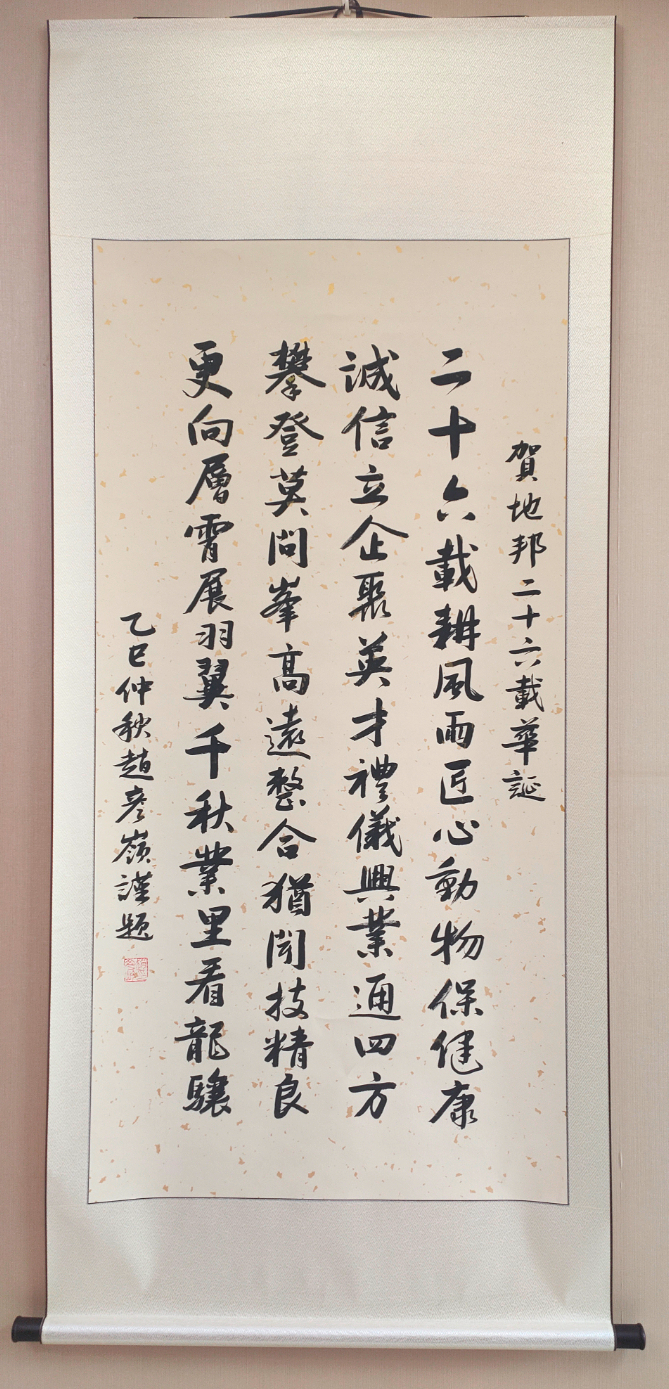 賀地邦二十六載華誕
二十六載耕風雨匠心動物保健康
誠信立企聚英才禮儀興業通四方
攀登莫問峯高遠整合猶聞技精良
更向層霄展羽翼千秋業里看龍驤
乙巳仲秋趙彦嶺謹題